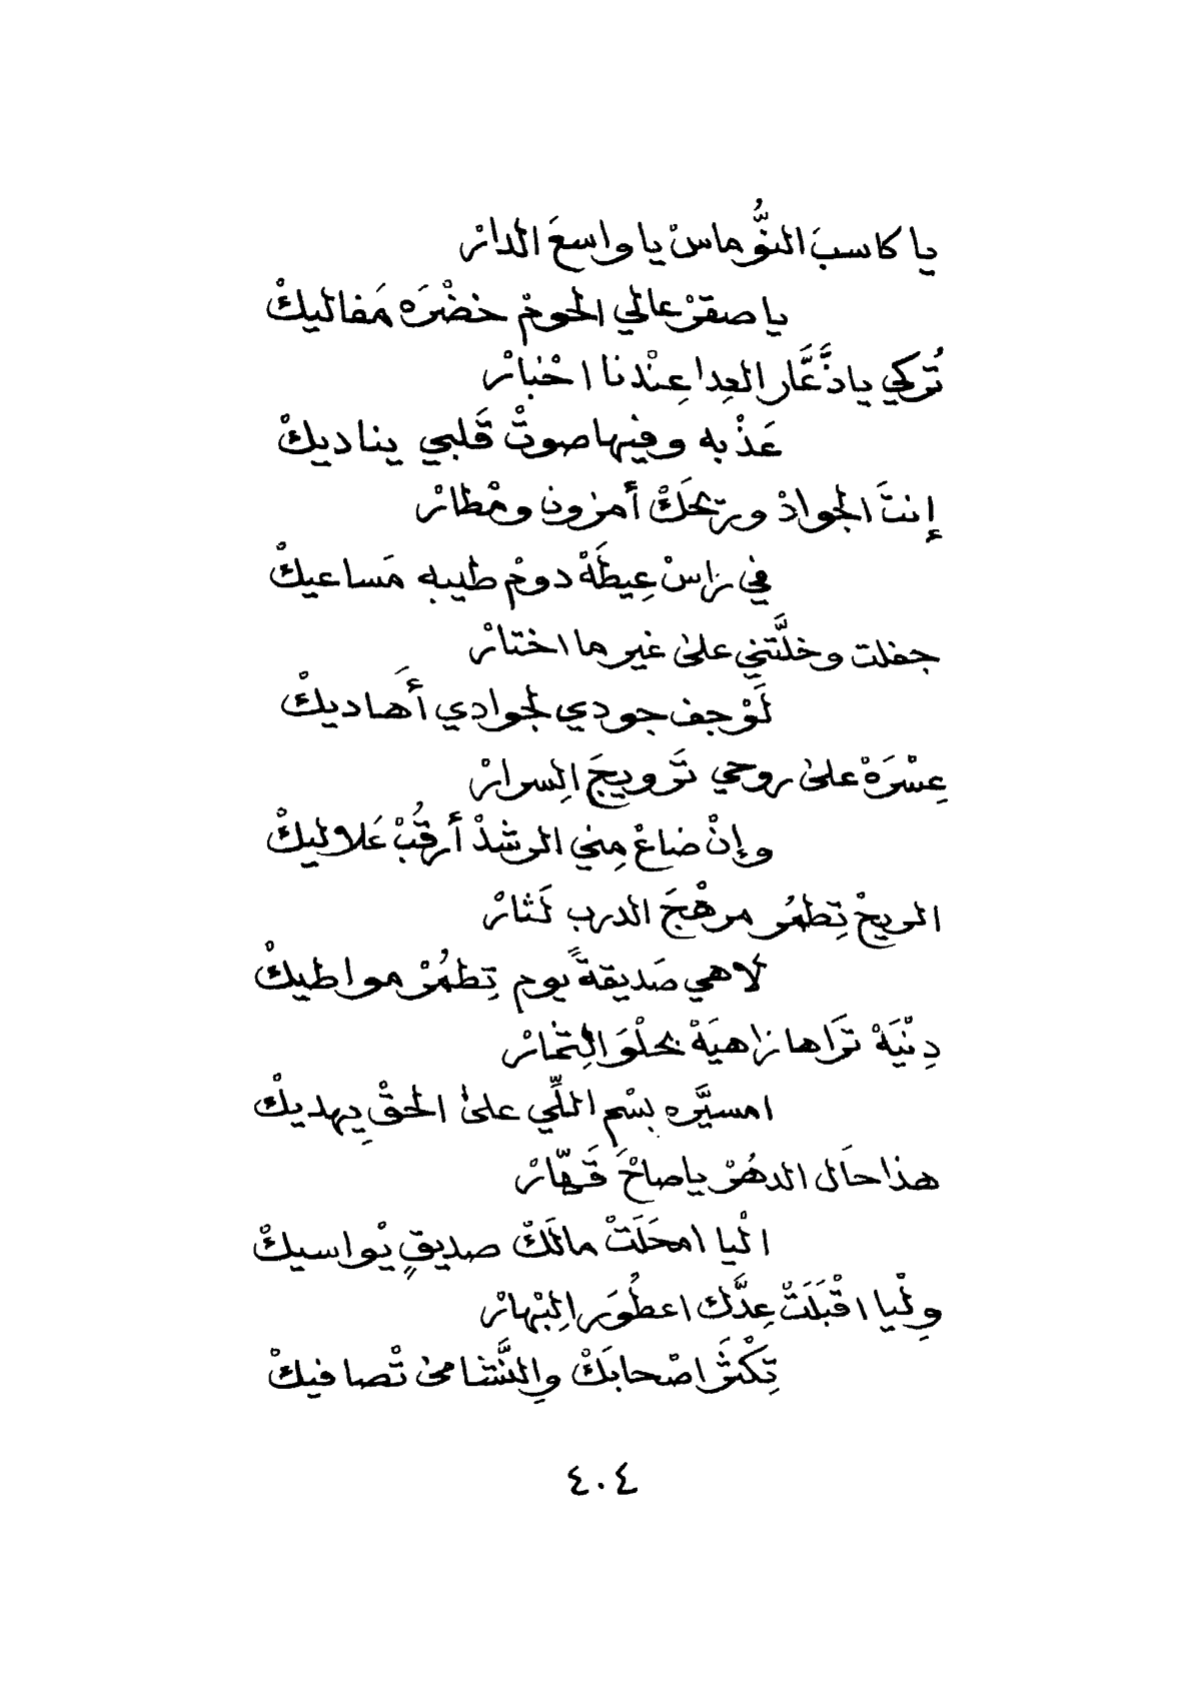 يا كاسبَ النُّوماسْ يا واسعَ الدارْ
يا صقرْ عالي الحومْ خضْرَه مَفاليكْ
تُركي ياذَّعَّار العِدا عِنْدنا احْبارْ
عَذْبه وفيها صوتْ قَلبي يناديكْ
إنتَ الجوادْ وربحَكْ أمزون ومْطارْ
في راسْ عِيطَهْ دومْ طيبه مَساعيكْ
جفلت وخلَّتني علىٰ غير ما اختارْ
لَوْ جف جودي لجوادي أَهاديكْ
عِسْرَهْ علىٰ روحي تَرويجَ الِسرارْ
وإنْ ضاعْ مِني الرشدْ أرقُبْ عَلاليكْ
الريحْ تِطمُر مرهْجَ الدرب لَثارْ
لا هي صَديقةً يوم تِطمُرْ مواطيكْ
دِنْيَهْ تَراها زاهيَهْ بحلْوَ الِثمارْ
امسيَّره بسْم اللِّي علىٰ الحقْ يِهديكْ
هذا حاَل الدهُرْ ياصاحْ قَهّارْ
الْيا امحَلَتْ مالَكْ صديقٍ يْواسيكْ
وِلْيا اقْبَلَتْ عِدَّك اعطُوَر الِبْهارْ
تِكْثَر اصْحابَكْ والنَّشامىٰ تْصافيكْ
٤٠٤